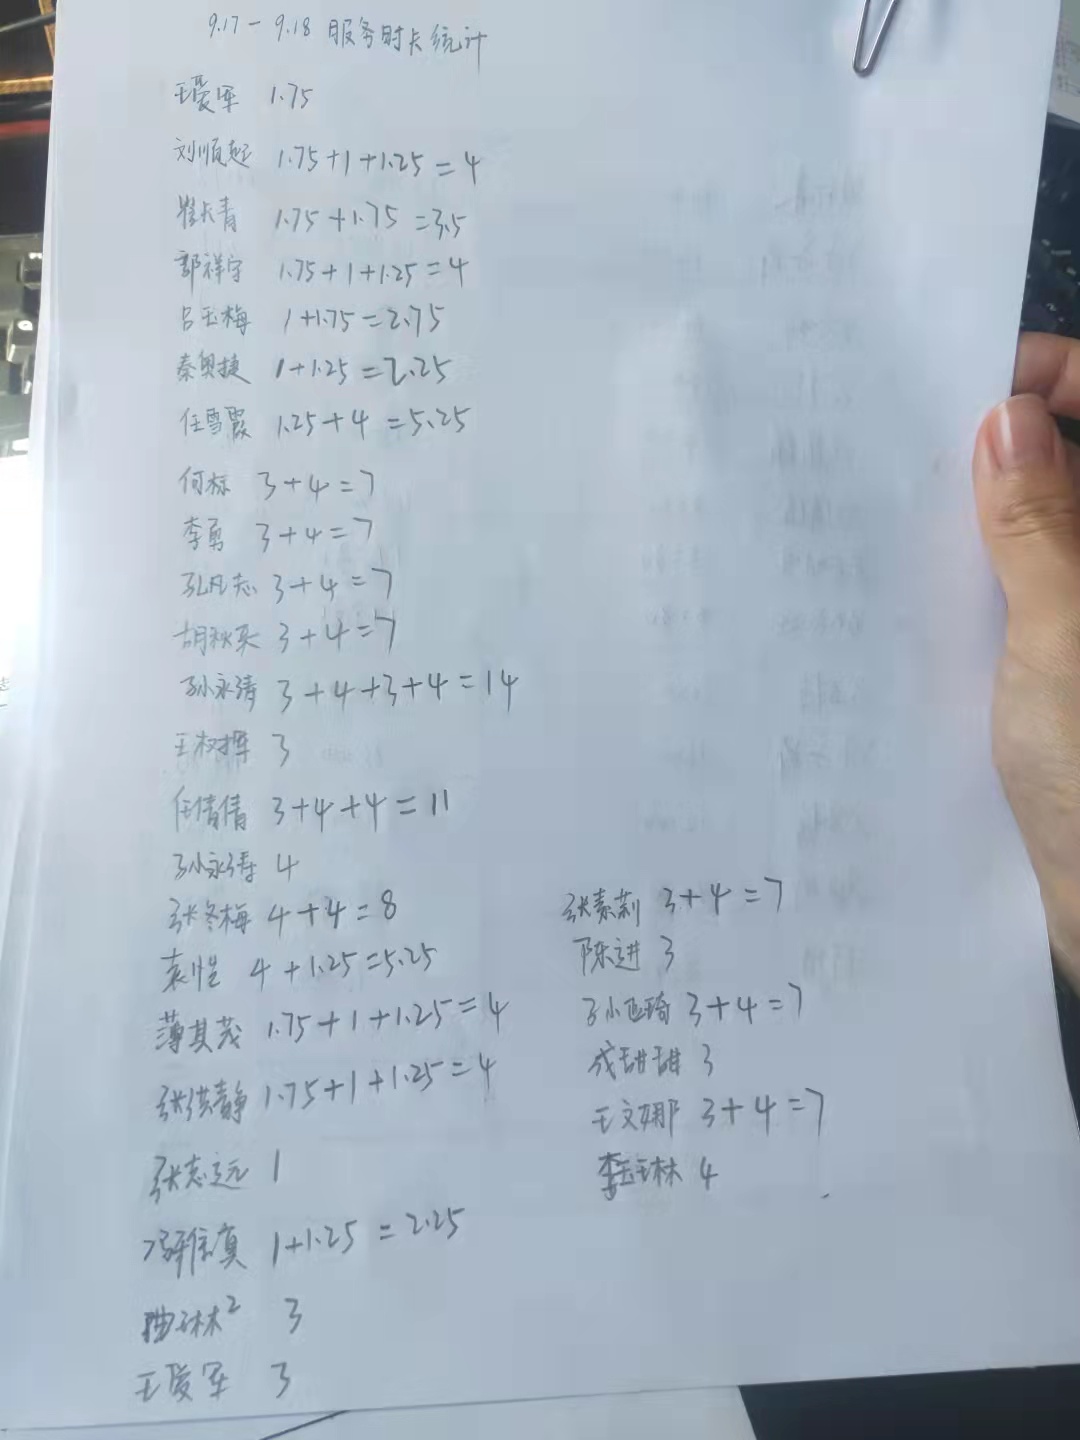 9.17-9.18 服务时长统计
王爱军 1.75
刘顺起 1.75+1+1.25=4
崔长青 1.75+1.75=3.5
郭祥宇 1.75+1+1.25=4
吕玉梅 1+1.75=2.75
秦奥捷 1+1.25=2.25
任雪霞 1.25+4=5.25
何标 3+4=7
李勇 3+4=7
孔凡志 3+4=7
胡秋英 3+4=7
孙永涛 3+4+3+4=14
王树军 3
任倩倩 3+4+4=11
孙永涛 4
张冬梅 4+4=8
袁恺 4+1.25=5.25
薄其茂 1.75+1+1.25=4
张洪静 1.75+1+1.25=4
张志远 1
冯倍真 1+1.25=2.25
3
王爱军 3
张素莉 3+4=7
陈进 3
孙亚琦 3+4=7
成甜甜 3
王文娜 3+4=7
李玉林 4